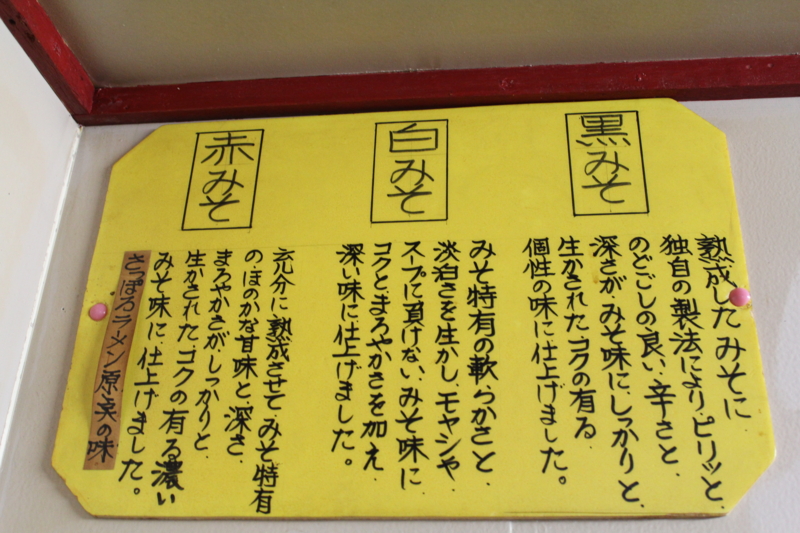 黒みそ
熟成したみそに
独自の製法により、ピリッと、
のどごしの良い、辛さと、
深さが、みそ味に、しっかりと、
生かされたコクの有る
個性の味に仕上げました。
白みそ
みそ特有の軟らかさと、
淡泊さを生かし、モヤシや、
スープに負けない、みそ味に
コクとまろやかさを加え、
深い味に仕上げました。
赤みそ
充分に熟成させて、みそ特有
の、ほのかな甘味と、深さ、
まろやかさがしっかりと、
生かされた、コクの有る濃い
みそ味に、仕上げました。
さっぽろラーメン原点の味